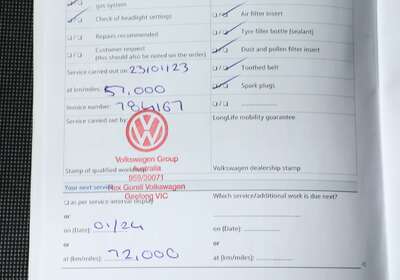 gas system
Check of headlight settings
Repairs recommended
Customer request
(this should also be noted on the order)
Service carried out on: 23/01/23
at km/miles: 57,000
Invoice number: 784167
Service carried out by:
Volkswagen Group
Australia
959/20071
Rex Gorell Volkswagen
Geelong VIC
Stamp of qualified
Air filter insert
Tyre filler bottle (sealant)
Dust and pollen filter insert
Toothed belt
Spark plugs
LongLife mobility guarantee
Volkswagen dealership stamp
Your next service
as per service interval display
or
on (Date): 01/24
or
at (km/miles): 72,000
Which service/additional work is due next?
or
on (Date):
or
at (km/miles):